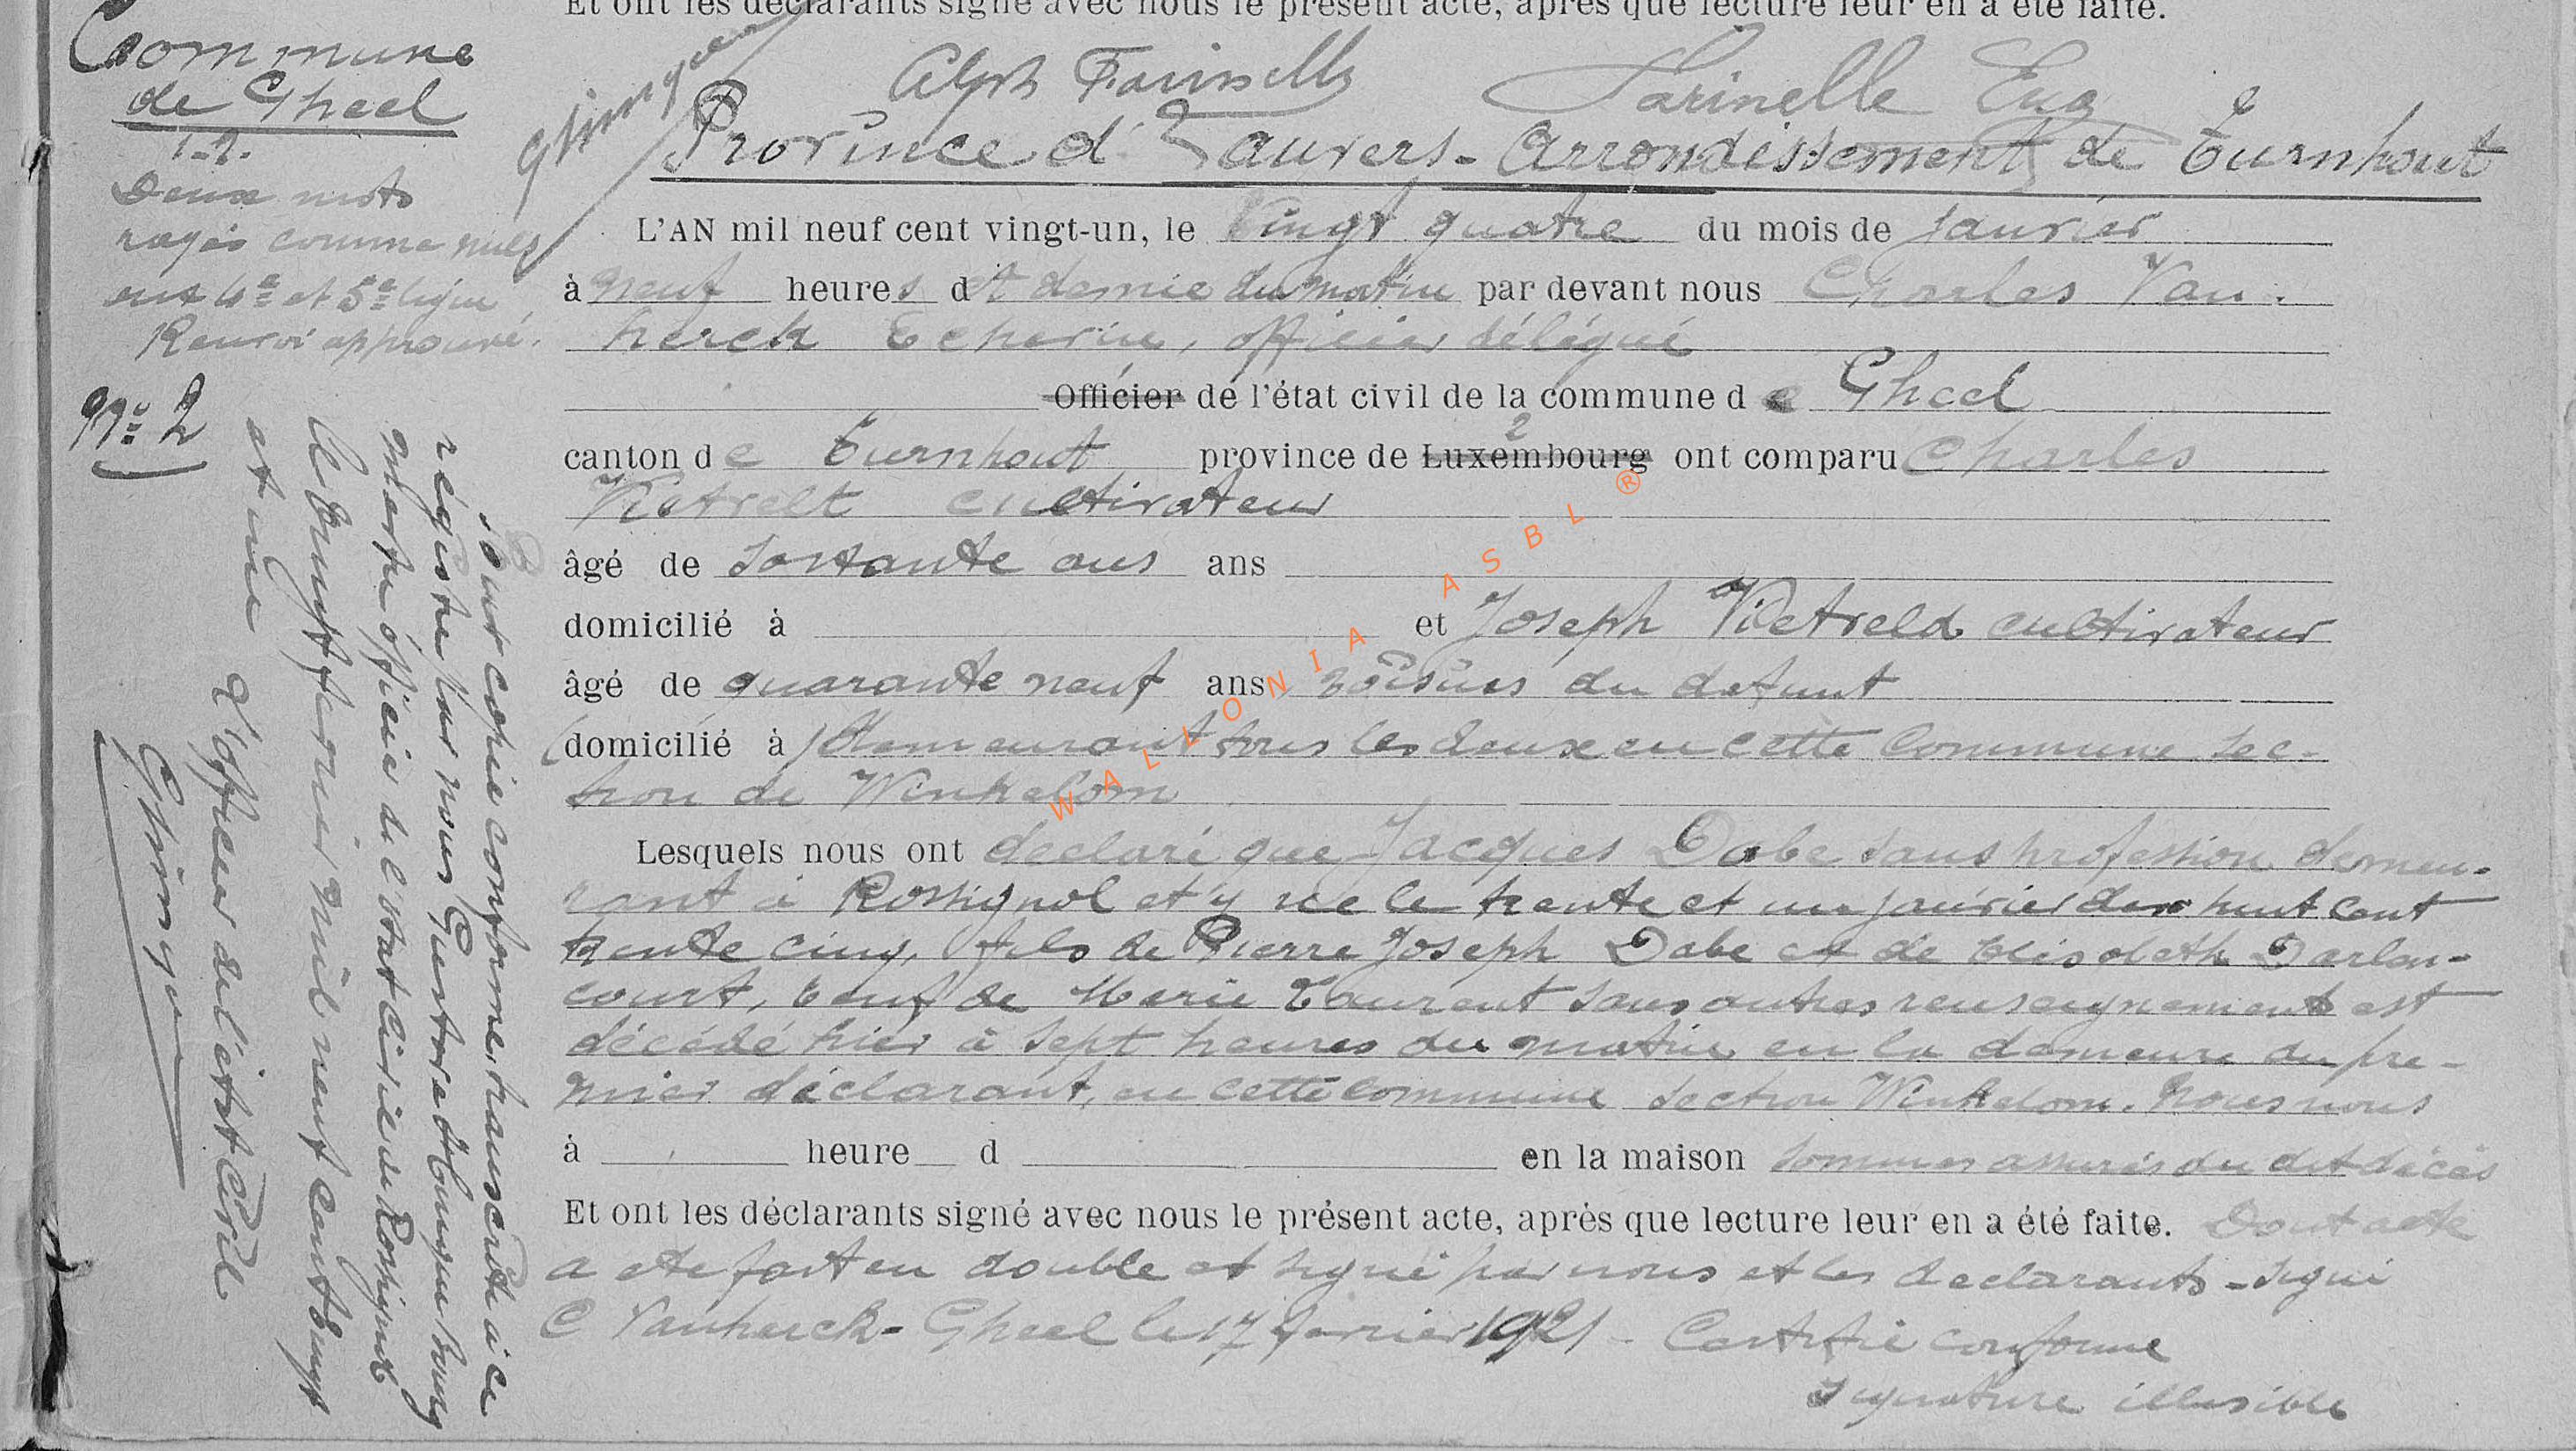 Et ont les déclarants signé avec nous le présent acte, après que lecture leur en a été faite.
Alph Farinelle Farinelle Eug
Commune
de Gheel
1-2.
Deux mots
rayés comme nuls
aux 4e et 5e ligne
Renvoi approuvé.
No 2
Province d'Anvers - Arrondissement de Turnhout
L'AN mil neuf cent vingt-un, le vingt quatre du mois de Janvier
à neuf heures d et demie du matin par devant nous Charles Van
herck Echevin, officier délégué
Officier de l'état civil de la commune de Gheel
canton de Turnhout province de Luxembourg ont comparu Charles
cultivateur
âgé de soixante ans ans
domicilié à et Joseph cultivateur
âgé de quarante neuf ans voisins du defunt
(domicilié à) demeurant tous les deux en cette commune sec-
tion de Winkelom
Lesquels nous ont declaré que Jacques Dabe sans profession demeu-
rant à Rossignol et y né le trente et un janvier dix huit cent
trente cinq, fils de Pierre Joseph Dabe et de Elisabeth Darlon-
court, veuf de Marie Laurent sans autres renseignements est
décédé hier à sept heures du matin en la demeure du pre-
mier déclarant, en cette commune section Winkelom. Nous nous
à heure d en la maison sommes assurés du dit décès
Et ont les déclarants signé avec nous le présent acte, après que lecture leur en a été faite. Dont acte
a ete fait en double et signé par nous et les declarants - signé
C Vanherck - Gheel le 17 fevrier 1921 - Certifié conforme
signature illisible
Pour copie conforme, transcrite à ce
régistre par nous Gustave
officier de l'etat Civil de Rossignol
le vingt fevrier mil neuf cent vingt
et une
L'officier de l'état Civil
WALLONIA ASBL ®